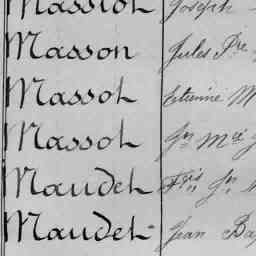 Massiot Joseph
Masson Jules Pre
Massot Etienne M
Massot Jn Mcel
Maudet Fcis Jn
Maudet Jean Bap